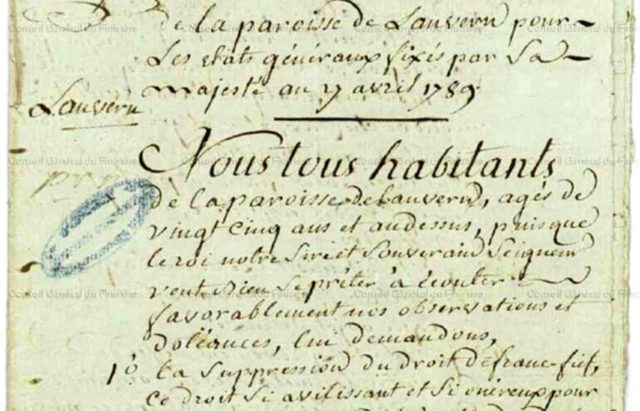 de la paroisse de Lanvern pour
Les etats généraux fixés par Sa
majesté au 27 avril 1789.
Lanvern
Nous tous habitants
de la paroisse de Lanvern, agés de
vingt cinq ans et audessus, puisque
le roi notre Sire et Souverain Seigneur
veut bien se prêter à écouter
favorablement nos observations et
doléances, lui demandons,
1º La suppression du droit de franc-fief,
ce droit si avilissant et si onéreux pour
Conseil Général du Finistère